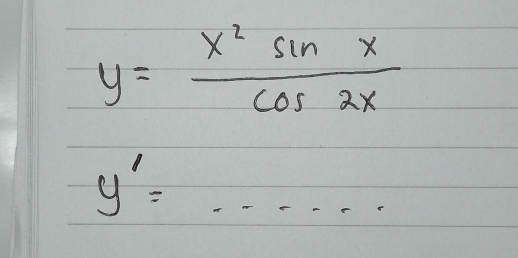 y = x² sin x / cos 2x
y' = . . . . . .